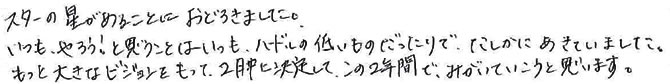 スターの星があることにおどろきました。
いつも、やろう!と思うことはいつも、ハードルの低いものだったりで、たしかにあきていました。
もっと大きなビジョンをもって、2月中に決定して、この2年間で、みがいていこうと思います。